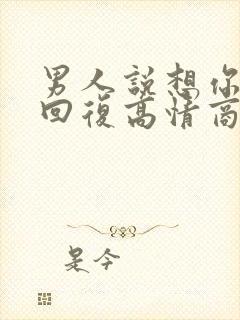 男人說想你
回復高情商
是今